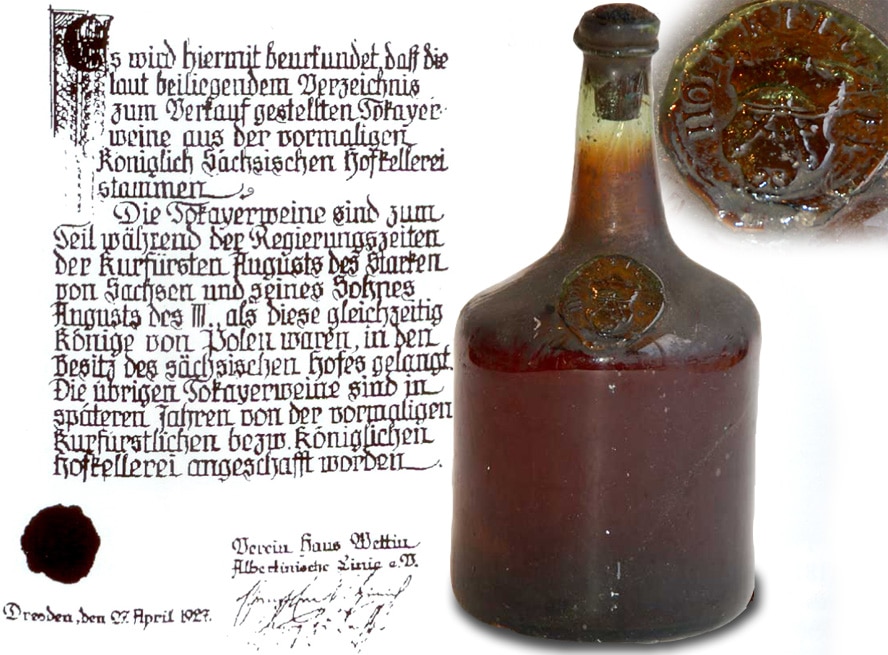 Es wird hiermit beurkundet, daß die
laut beiliegendem Verzeichnis
zum Verkauf gestellten Tokayer-
weine aus der vormaligen
Königlich Sächsischen Hofkellerei
stammen
Die Tokayerweine sind zum
Teil während der Regierungszeiten
der Kurfürsten Augusts des Starken
von Sachsen und seines Sohnes
Augusts des III., als diese gleichzeitig
Könige von Polen waren, in den
Besitz des sächsischen Hofes gelangt.
Die übrigen Tokayerweine sind in
späteren Jahren von der vormaligen
Kurfürstlichen bezw. Königlichen
Hofkellerei angeschafft worden.
Verein Haus Wettin
Albertinische Linie e.V.
Dresden, den 27. April 1927.